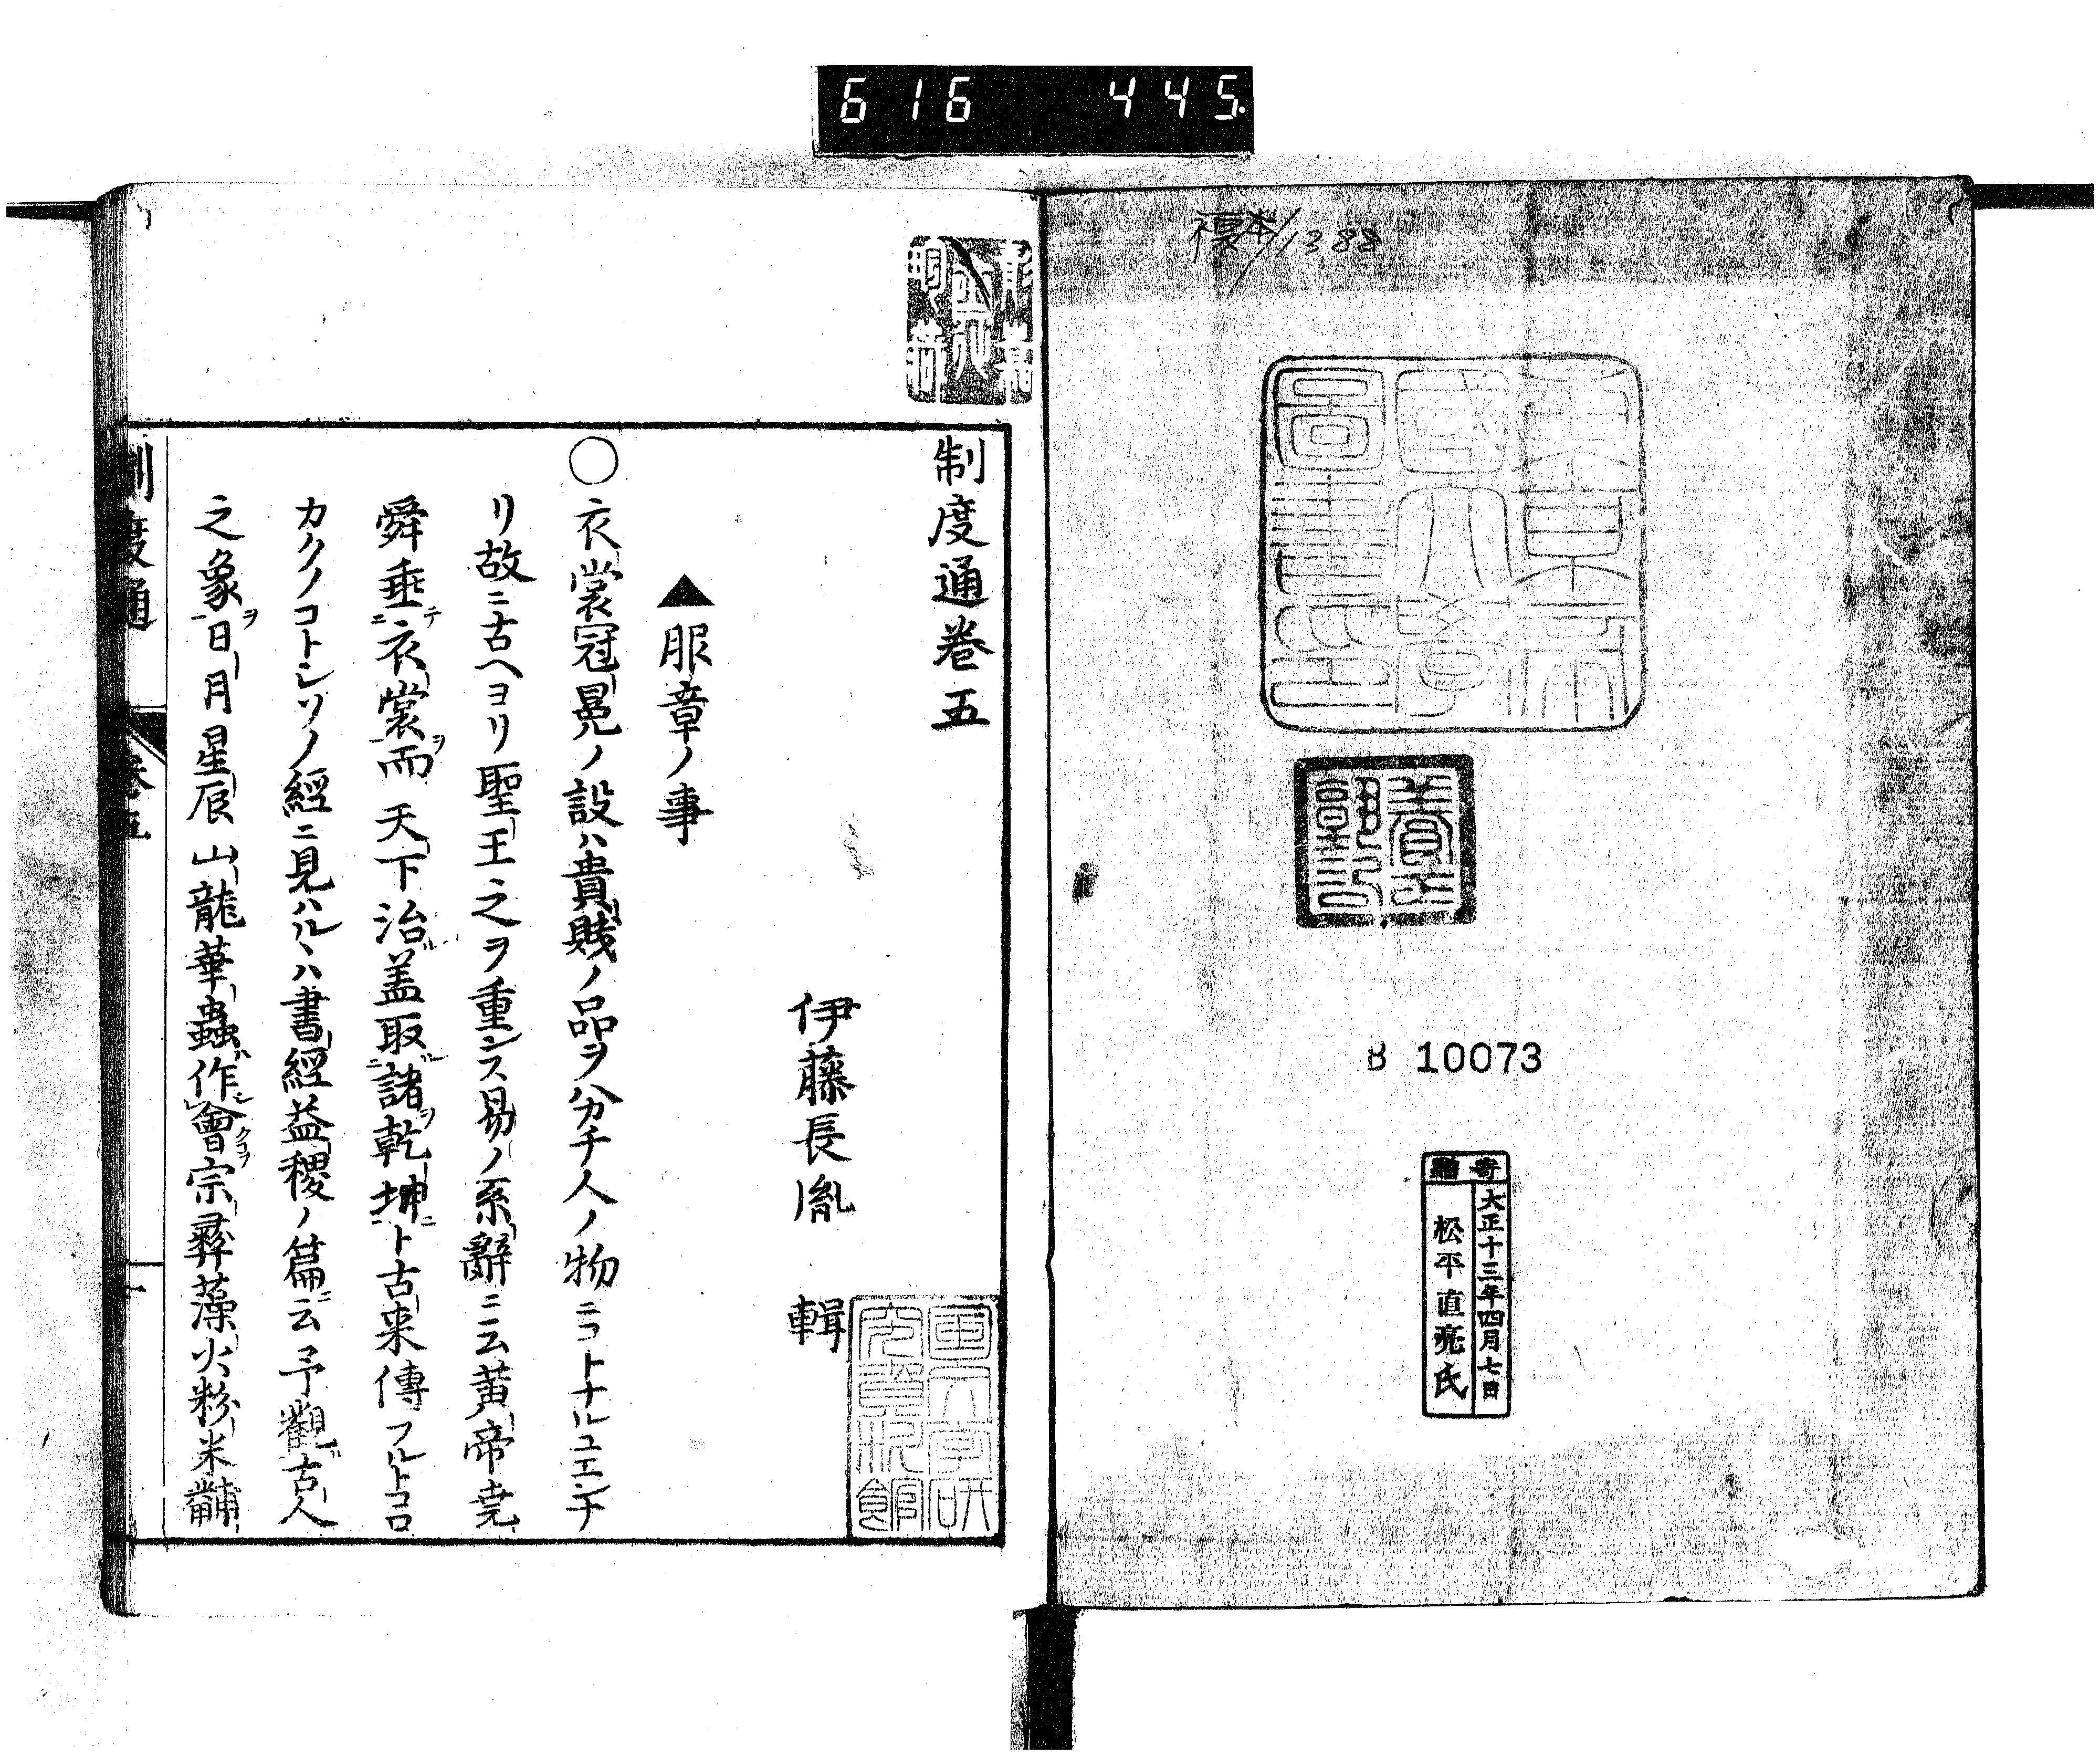 616 445
複本/1388
東京帝
國大學
圖書印
B 10073
寄贈
大正十三年四月七日
松平直亮氏
制度通卷五
伊藤長胤 輯
國文學研
究資料館
▲服章ノ事
○衣裳冠冕ノ設ハ貴賤ノ品ヲ分チ人ノ物ニコトナルユエンナ
リ故ニ古ヘヨリ聖王之ヲ重ンス易ノ系辭ニ云黃帝堯
舜垂衣裳ヲ而天下治蓋取諸ヲ乾坤ニト古来傳フルトコロ
カクノコトシソノ經ニ見ハルヽハ書經益稷ノ篇ニ云予觀古人
之象ヲ日月星辰山龍華蟲作會宗彛藻火粉米黼
制度通
卷五
一